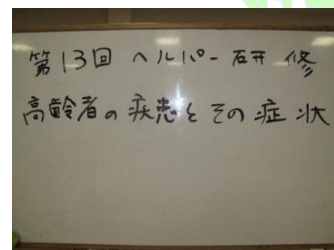 第13回 ヘルパー研修
高齢者の疾患とその症状